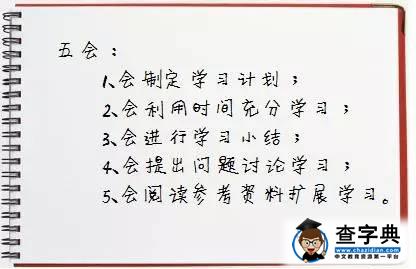 五会：
1、会制定学习计划；
2、会利用时间充分学习；
3、会进行学习小结；
4、会提出问题讨论学习；
5、会阅读参考资料扩展学习。
查字典
www.chazidian.com
中文教育资源第一平台